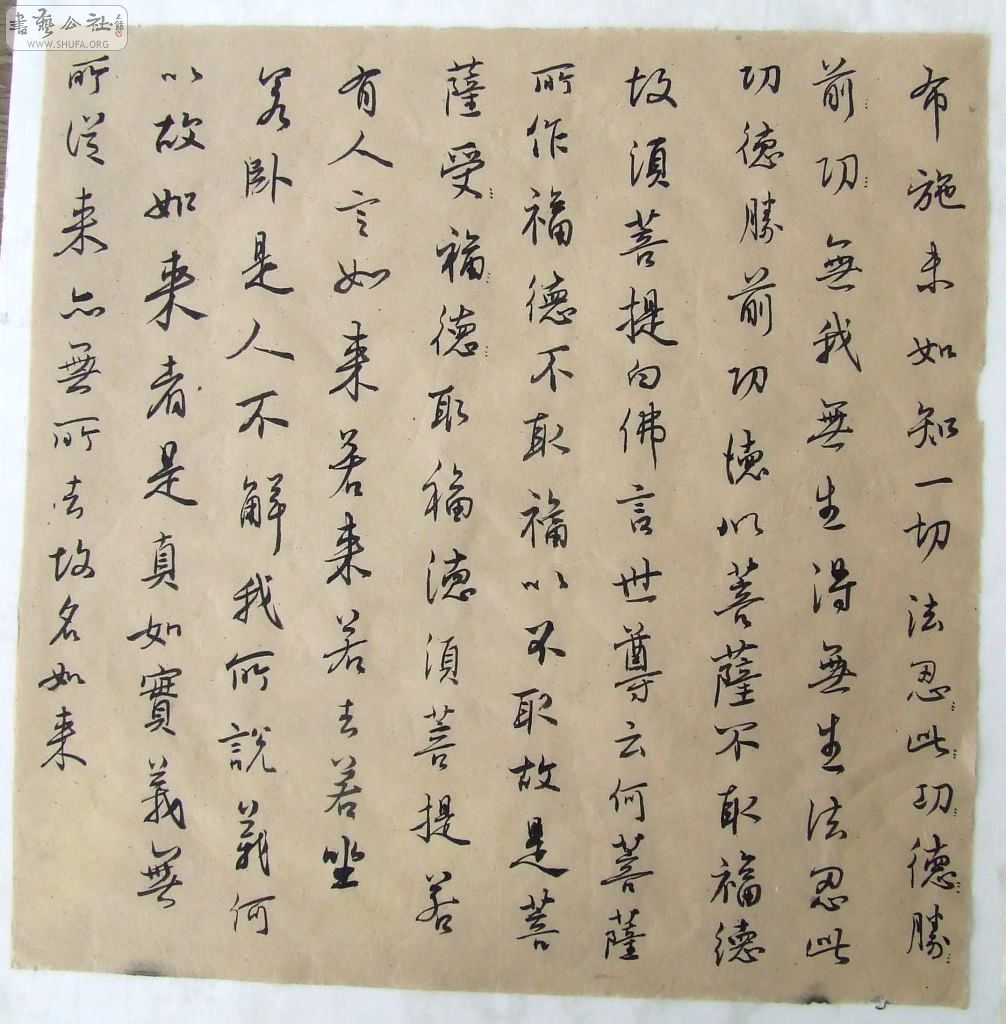 書藝公社
WWW.SHUFA.ORG
布施未如知一切法忍此功德勝
前功無我無生得無生法忍此
功德勝前功德以菩薩不取福德
故須菩提白佛言世尊云何菩薩
所作福德不取福以不取故是菩
薩受福德取福德須菩提若
有人言如来若来若去若坐
若卧是人不解我所說義何
以故如来者是真如實義無
所從来亦無所去故名如来